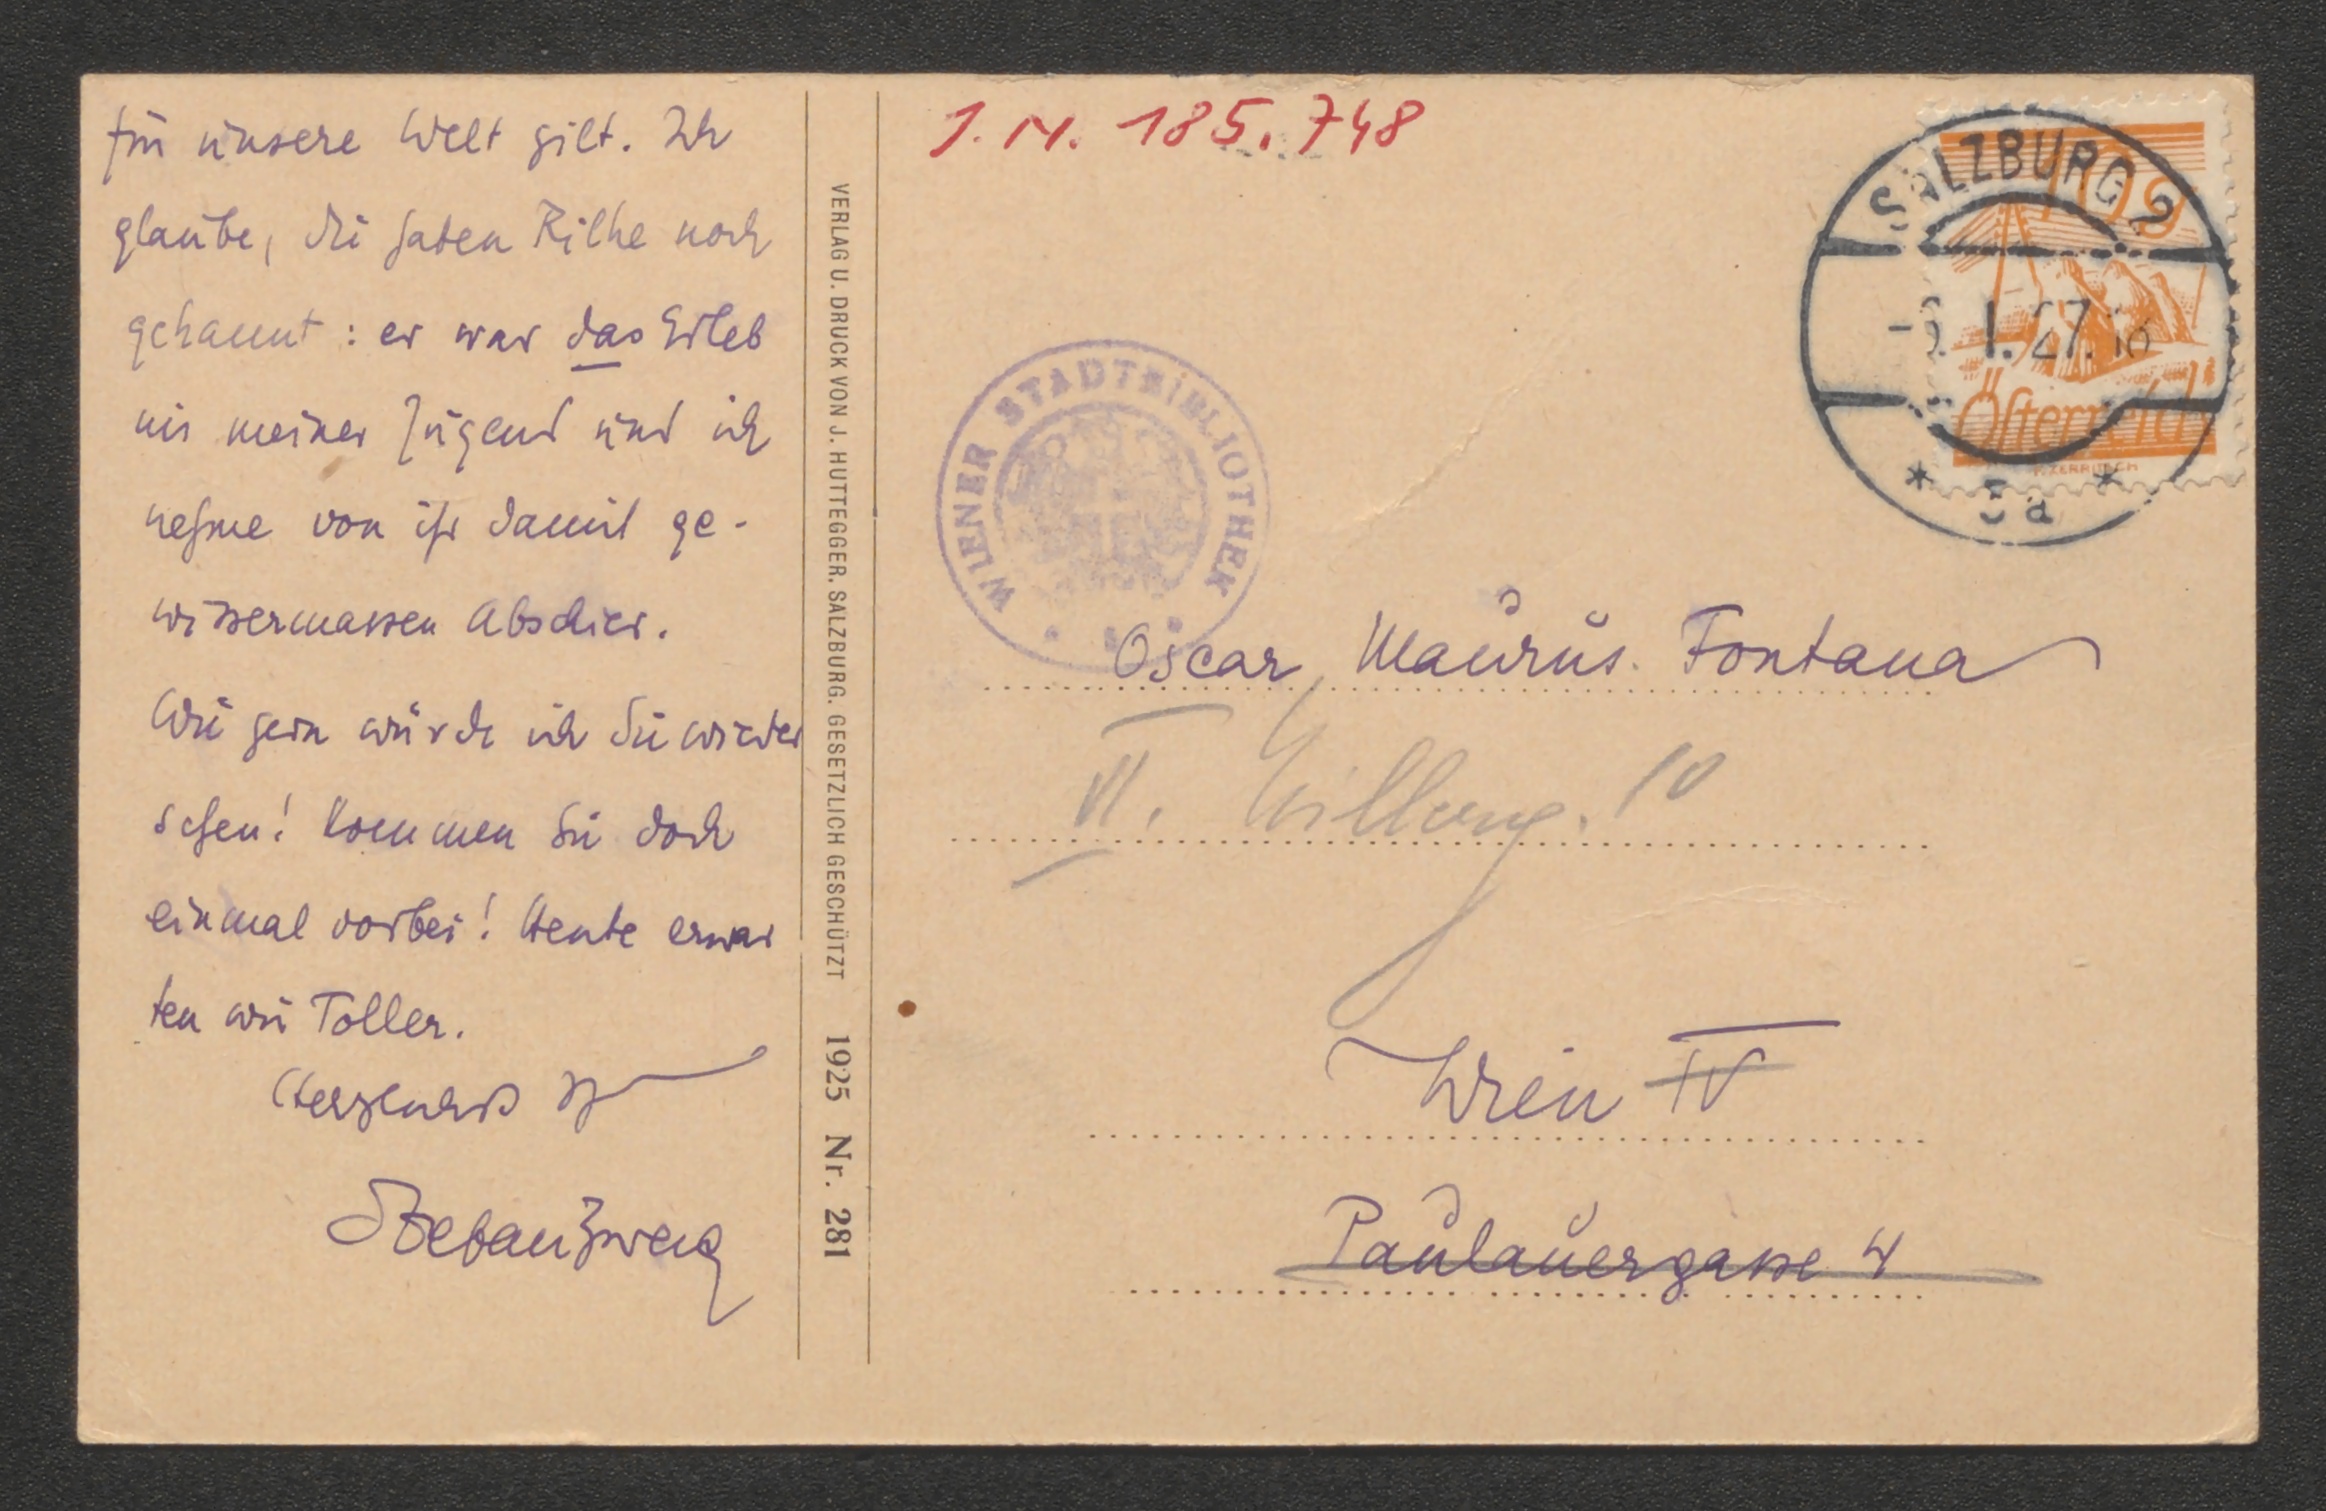 für unsere Welt gilt. Ich
glaube, Sie haben Rilke noch
gekannt: er war das Erleb
nis meiner Jugend und ich
nehme von ihr damit ge-
wissermassen Abschied.
Wie gern würde ich Sie wieder
sehen! Kommen Sie doch
einmal vorbei! Heute erwar
ten wir Toller.
Herzlichst Ihr
Stefan Zweig
VERLAG U. DRUCK VON J. HUTTEGGER. SALZBURG. GESETZLICH GESCHÜTZT 1925 Nr. 281
J. N. 185.748
SALZBURG 2
I. 27. 16
10 g
Österreich
WIENER STADTBIBLIOTHEK
Oscar Maurus Fontana
10
Wien IV
Paulanergasse 4